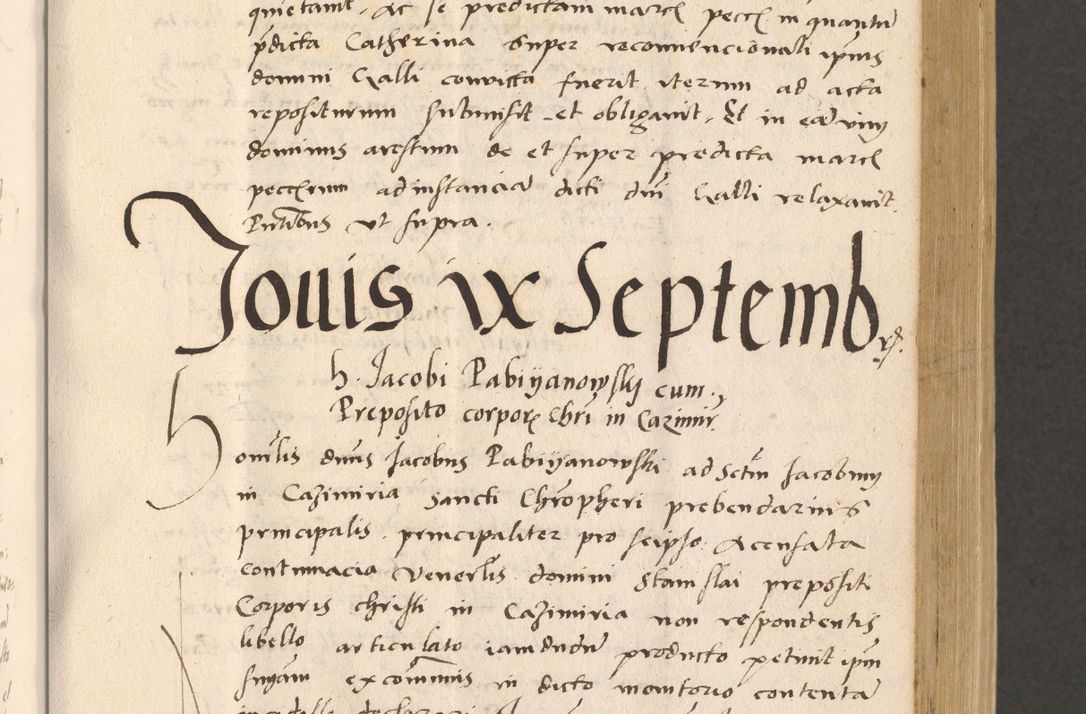 quietauit. Ac se predictam marcẽ peccẽ in quantũ
p̃dicta Catherina super reconuencionali ipius
domini Galli conuicta fuerit iterum ad acta
repositurum submisit et obligauit. Et in eaͤ
dominus arestum de et super predicta marcẽ
peccẽrum ad instanciã dicti dñi Galli relaxauit.
ut supra.
Jouis ix Septembrẽ.
h. Jacobi Pabiyanowsky cum.
Preposito corporẽ Chrĩ in Cazimir̃.
Honr̃lis dñus Jacobus Pabiyanowski ad Sctm̃ Jacobum
in Cazimiria Sancti Chrõpheri prebendarius
principalis principaliter pro seipso. Acensata
contumacia venerl̃is domini Stanislai prepositi
Corporis christi in Cazimiria non respondentis
libello articulato iamdudũ producto petiuit ipm̃
excom̃unis in dicto monitorio contentã